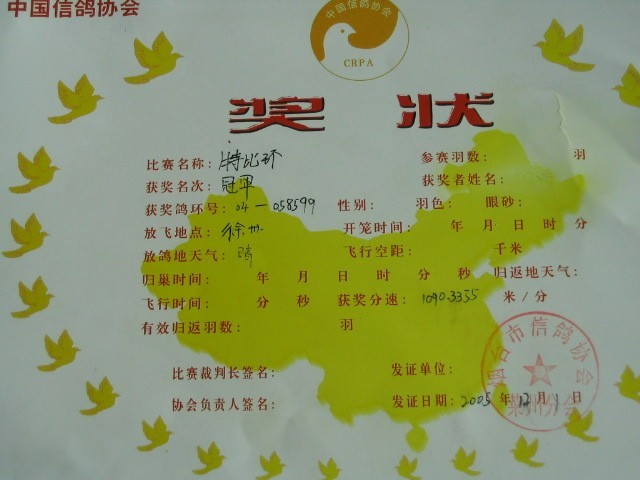 中国信鸽协会
中国信鸽协会
CRPA
奖 状
比赛名称: 特比环 参赛羽数: 羽
获奖名次: 冠军 获奖者姓名:
获奖鸽环号: 04-058599 性别: 羽色: 眼砂:
放飞地点: 徐州 开笼时间: 年 月 日 时 分
放鸽地天气: 晴 飞行空距: 千米
归巢时间: 年 月 日 时 分 秒 归返地天气:
飞行时间: 分 秒 获奖分速: 1090.3355 米/分
有效归返羽数: 羽
比赛裁判长签名: 发证单位:
协会负责人签名: 发证日期: 2005 年 12 月 1 日
烟台市信鸽协会
莱州分会